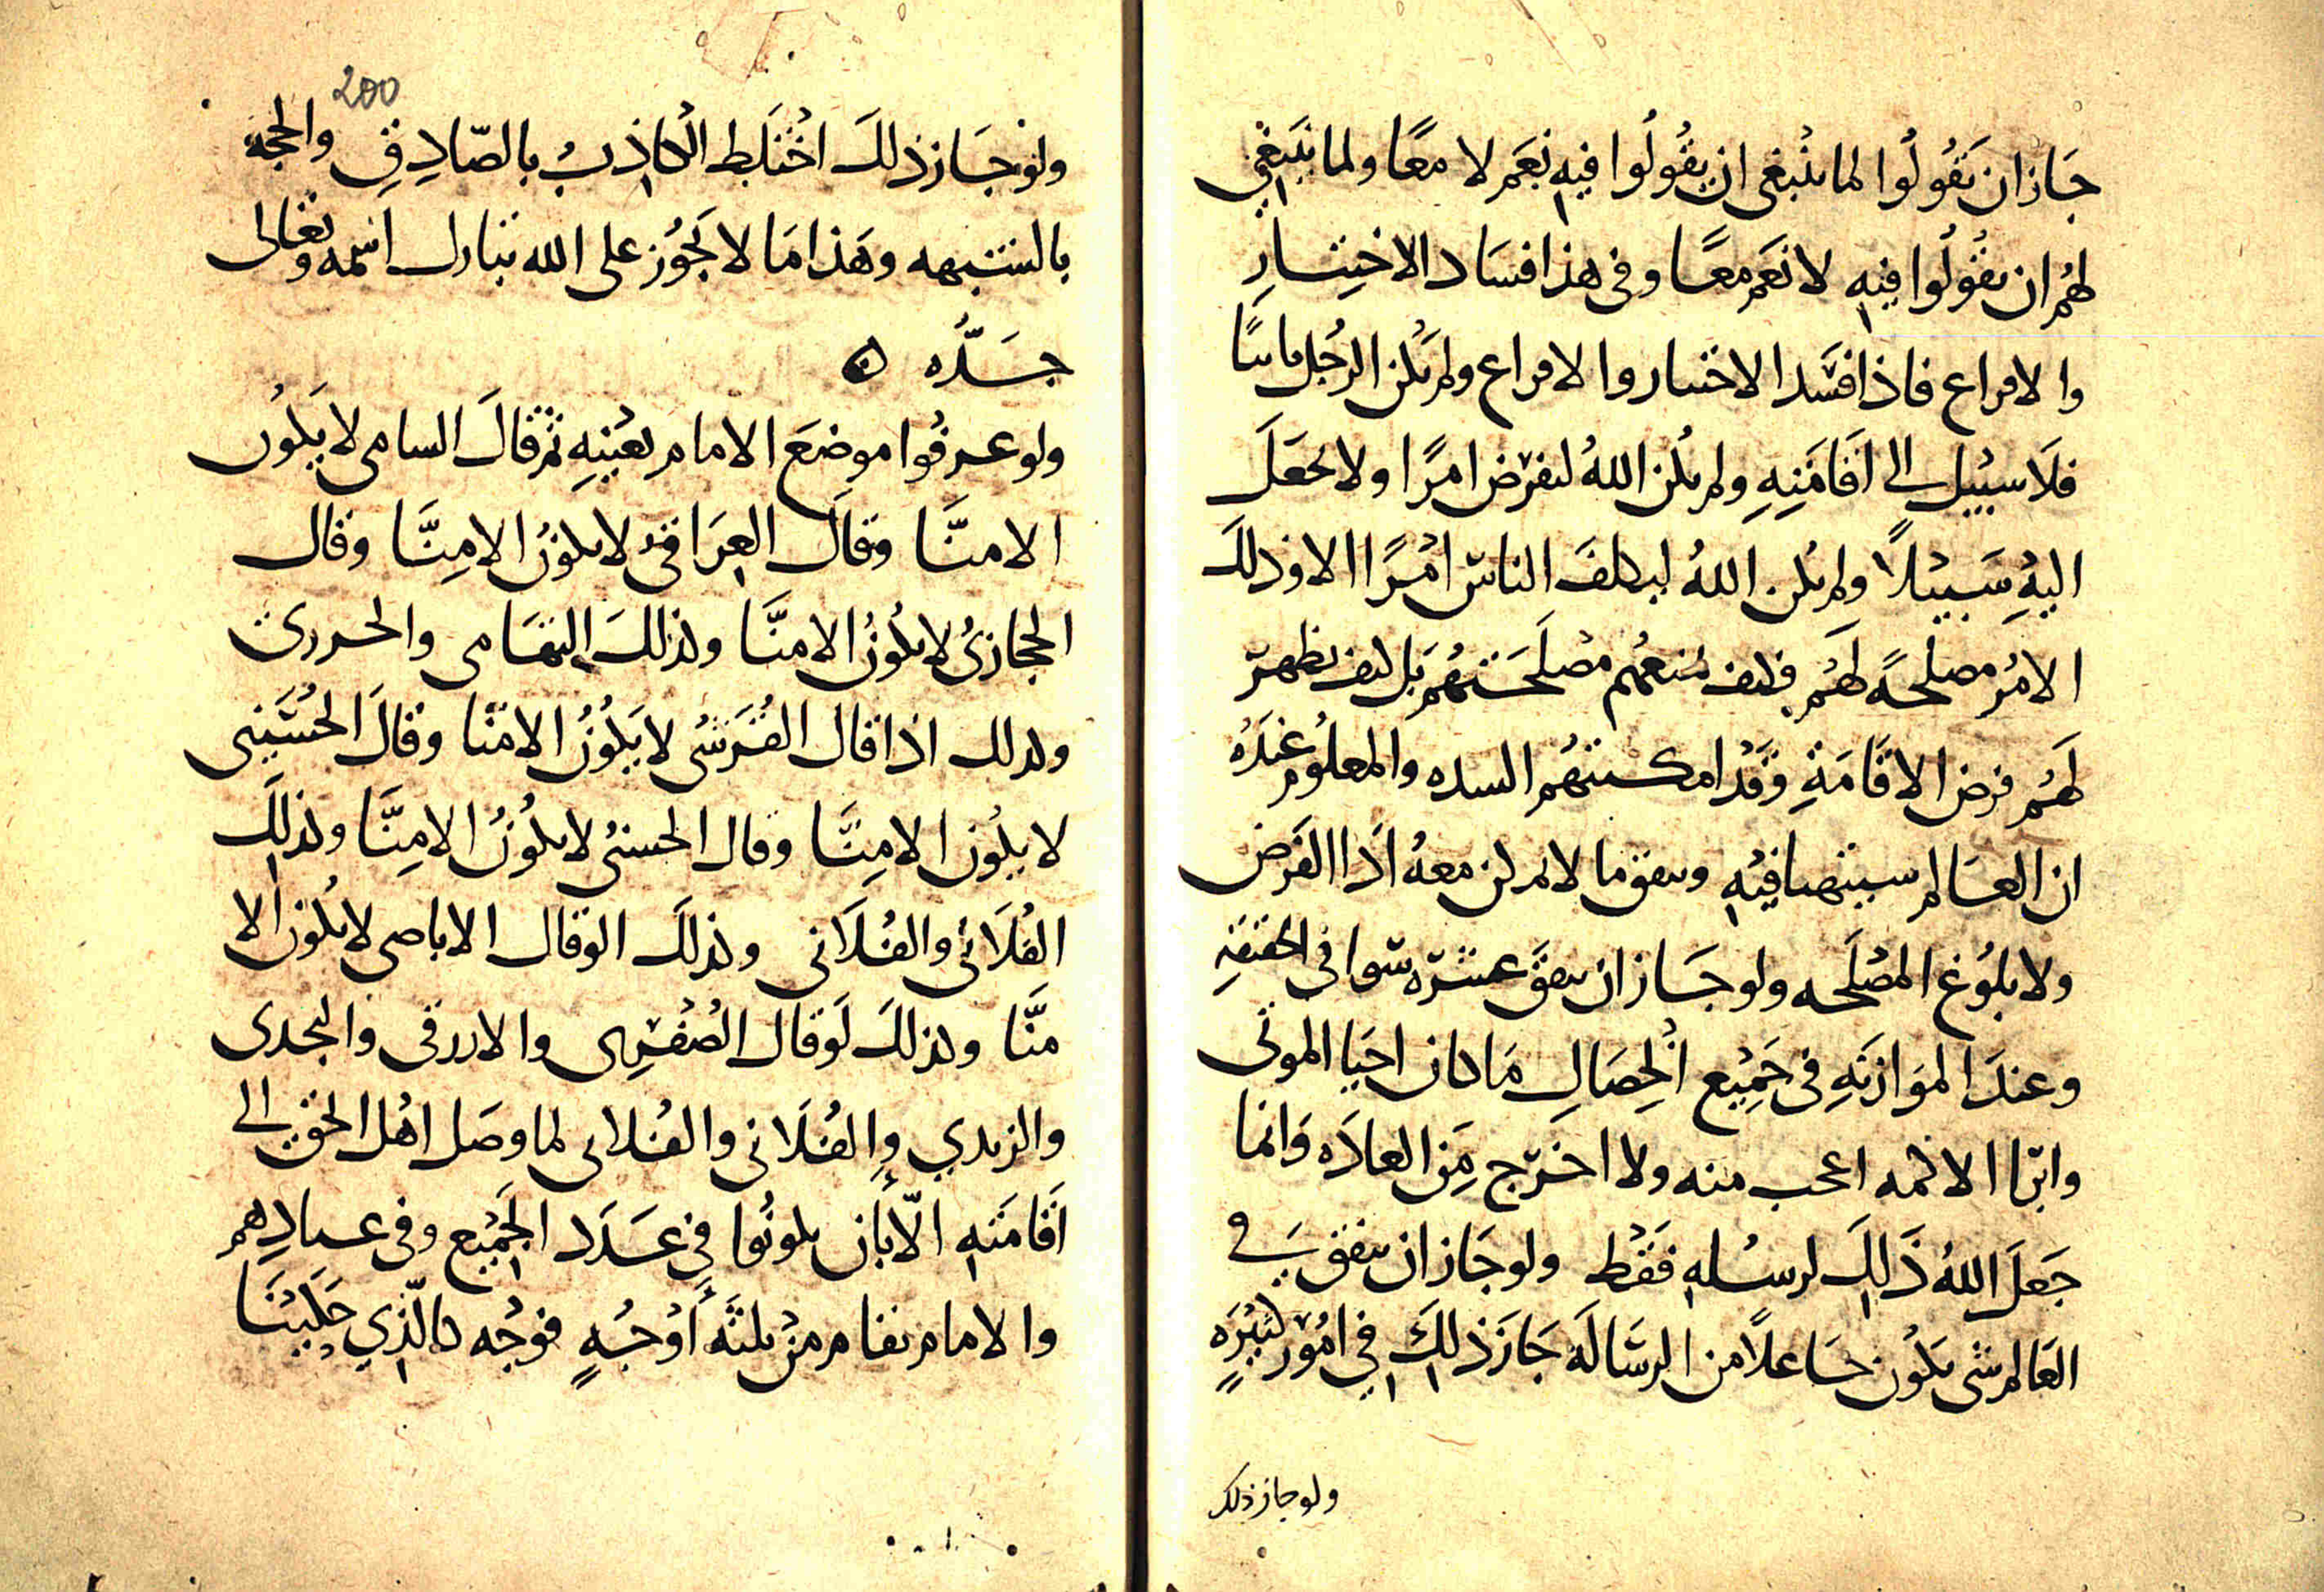 جَازان يَقُولُوا لما ينْبغى ان يقُولُوا فيهِ نَعَم لا معًا ولما ينبَغى
لهُم ان يقُولُوا فيهِ لا نَعَم معًا وفى هذا فسَاد الاختِيَارِ
والاقراع فاذا فسَد الاختيار والاقراع ولم يكن الرجُل باينًا
فلَا سبيْل الى اقَامَتِهِ ولم يكُن اللهُ ليفرض امرًا ولا يجعَلَ
اليهِ سَبيْلًا ولم يكن اللهُ ليكلفَ الناسَ امْرًا الا وذلكَ
الامرُ مصلحةً لَهُم فكيف يمنعهُم مصْلحَتَهُم بَل كيف يظهرَ
لَهُم فرض الاقَامَةِ وقَدْ امكنتهُم والمعلُوم عندَهُ
ان العَالم سيتهيا فيْهِ ويتفق ما لا يمكن معهُ ادَا الفَرض
ولا بلوُغ المصْلَحه ولو جَاز ان يتفقَ عشرَه سَوا فى الحقيقهِ
وعندَ الموَازنَهِ فى جَمِيْع الْخِصَالِ مَا كان احيَا الموتى
وابرَا الاكمه اعجب منه ولا اخرَج مِن العادَه وَانما
جَعَلَ اللهُ ذَلِكَ لرسُلهِ فقَطْ ولو جَاز ان يتفق فى
العَالم شى يكُون خَا علًا من الرسَالَه جَازَ ذلِكَ فِي امُور كثِيْرَهٍ
ولو جاز ذلك
200
ولوْ جَاز ذلكَ اخْتَلَط الْكاذِبُ بالصَّادِقِ والحجة
بالشبهه وهَذا مَا لا يَجُوُز على الله تبارك اسمه وتعَالى
جَدُّه ه
ولو عرفُوا موضعَ الامام بعْينهِ ثم قالَ السامى لا يَكُون
الا منَّا وقالَ العِرَاقىُ لا يكونُ الا مِنَّا وقال
الحجَازىُ لا يكُونُ الا منَّا وكذلكَ التِهَامى والجزرى
وكذلك اذا قال القُرَشىُ لا يَكُونُ الا منّا وقالَ الحُسَيْنى
لا يكُون الا مِنَّا وقال الحسنىُ لا يكُونُ الا مِنَّا وكذلِكَ
الفُلَانى والفُلَانى وكذلكَ لو قال الاباضى لا يكُون الا
منَّا وكذلكَ لَو قال الصُفْرِى والازرقى والنجدى
والزيدي والفُلَانى والفُلانى لما وصَل اهْل الحق الى
اقَامَتهِ الّا بَان يكونُوا فِي عَدَد الْجَمِيْع وفى عتادِهم
والامام يقام منْ ثلثَه أوْجُهٍ فوجْه كالّذِي حَكَيْنَا